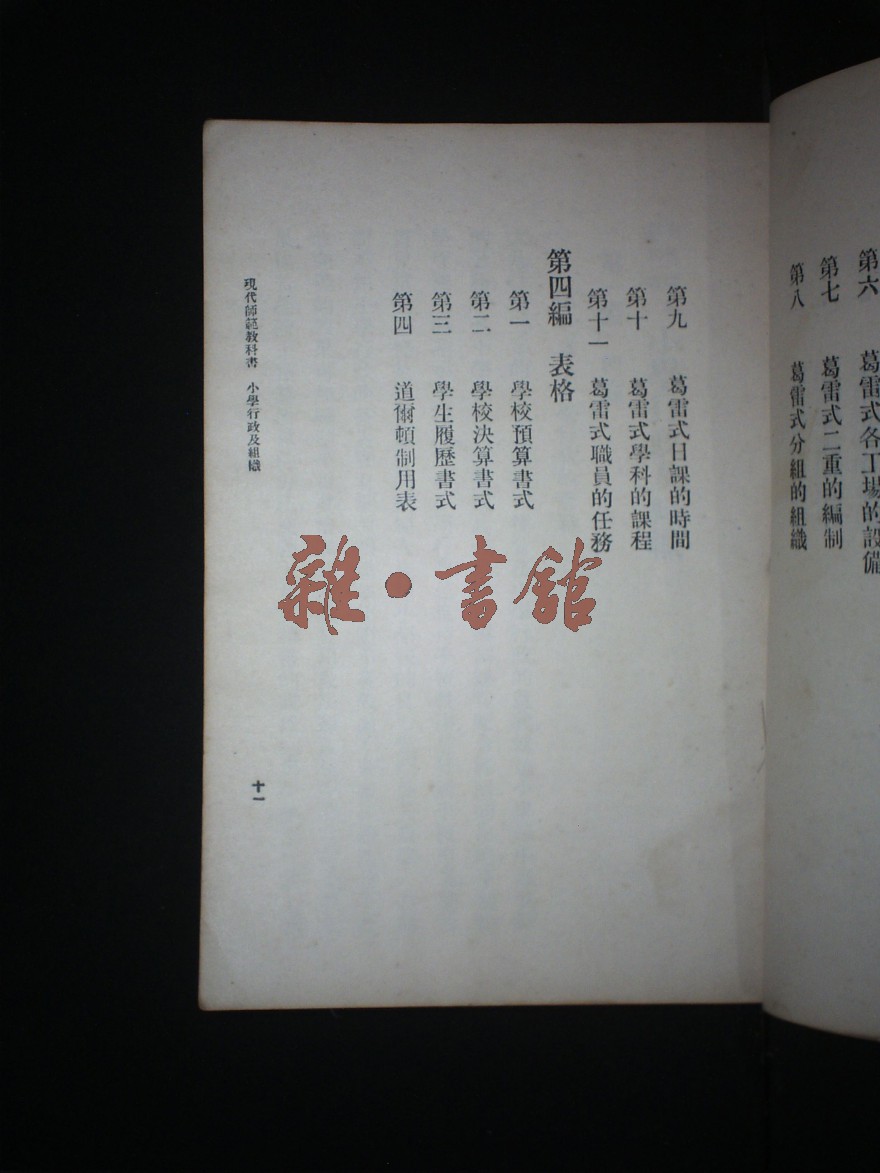 第六 葛雷式各工場的設備
第七 葛雷式二重的編制
第八 葛雷式分組的組織
第九 葛雷式日課的時間
第十 葛雷式學科的課程
第十一 葛雷式職員的任務
第四編 表格
第一 學校預算書式
第二 學校決算書式
第三 學生履歷書式
第四 道爾頓制用表
現代師範教科書 小學行政及組織
十一
雜·書館